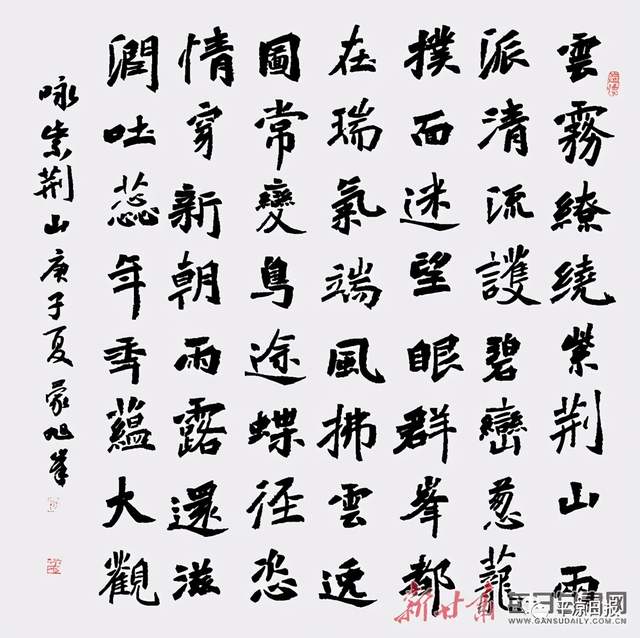 雲霧繚繞紫荆山兩
派清流護碧巒葱蘢
撲面迷望眼群峯都
在瑞氣端風拂雲逸
圖常變鳥途蝶徑恣
情穿新朝雨露還滋
潤吐蕊年年蘊大觀
咏紫荆山庚子夏旭峯
新甘肃
平凉日报
WWW.GANSUDAILY.COM.CN